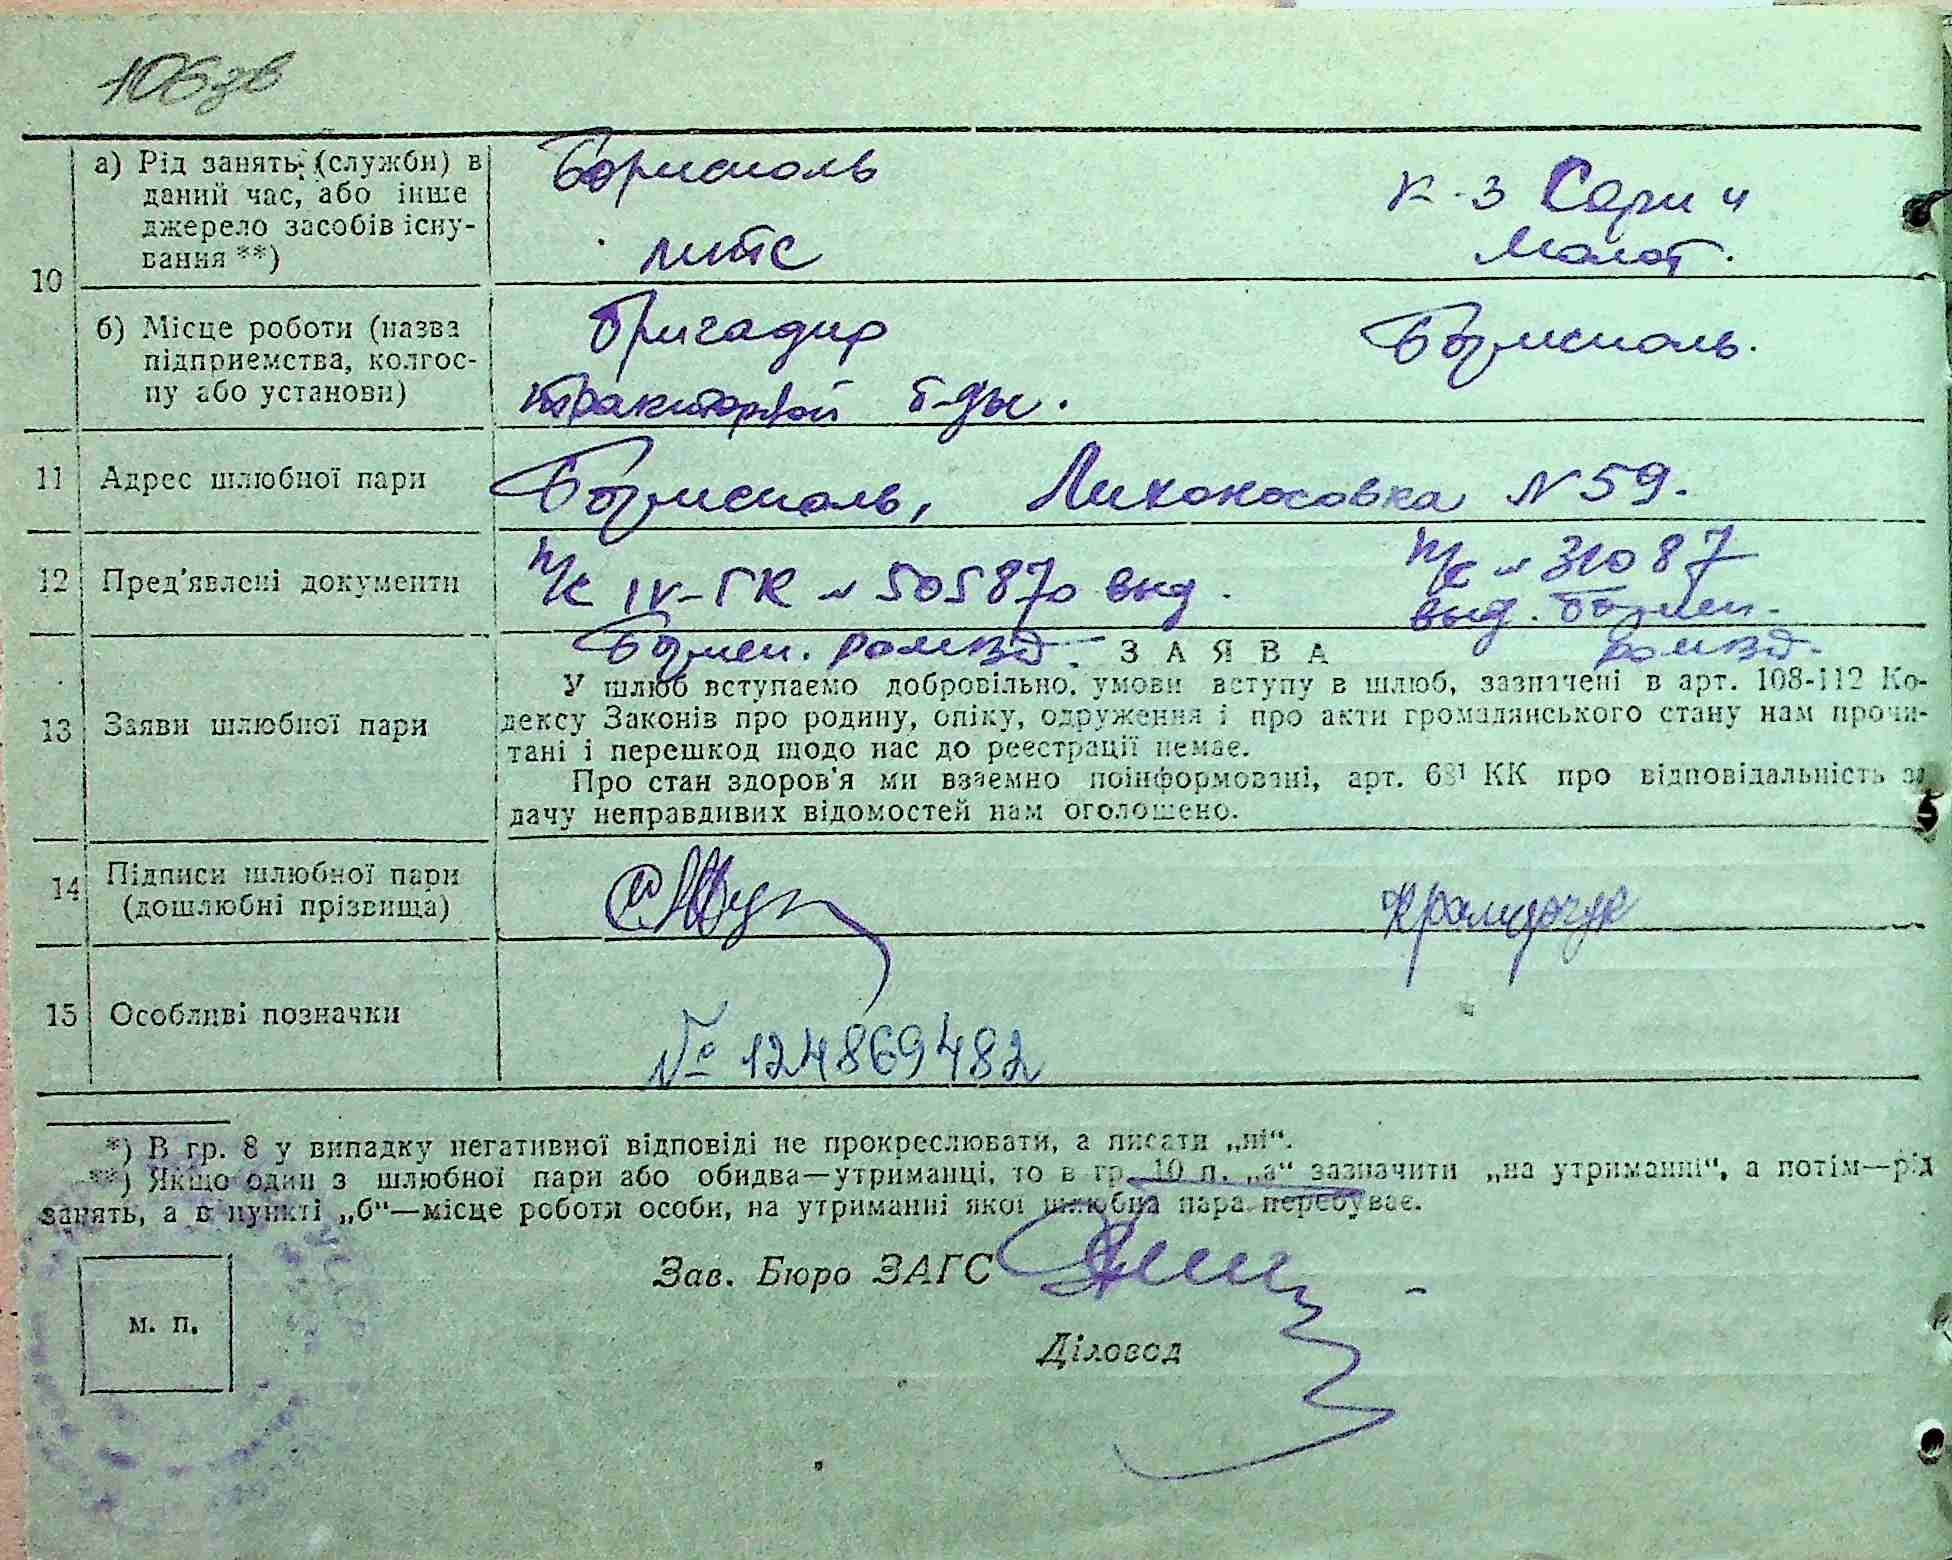 106зв
10
а) Рід занять (служби) в
даний час, або інше
джерело засобів існу-
вання **)
Бориспель
МТС
к-з Серп и
Молот.
б) Місце роботи (назва
підприємства, колгос-
пу або установи)
Бригадир
тракторной б-ды.
Борисполь.
11 Адрес шлюбної пари
Борисполь, Лихокосовка N 59.
12 Пред'явлені документи
п/с IV-ГК N 505870 выд.
Борисп. РОМВД.
п/с N 31087
выд. Борисп.
РОМВД.
13 Заяви шлюбної пари
ЗАЯВА
У шлюб вступаємо добровільно, умови вступу в шлюб, зазначені в арт. 108-112 Ко-
дексу Законів про родину, опіку, одруження і про акти громадянського стану нам прочи-
тані і перешкод щодо нас до реєстрації немає.
Про стан здоров'я ми взаємно поінформовані, арт. 68¹ КК про відповідальність за
дачу неправдивих відомостей нам оголошено.
14 Підписи шлюбної пари
(дошлюбні прізвища)
15 Особливі позначки
№ 124869482
*) В гр. 8 у випадку негативної відповіді не прокреслювати, а писати „ні“.
**) Якщо один з шлюбної пари або обидва—утриманці, то в гр. 10 п. „а“ зазначити „на утриманні“, а потім—рід
занять, а в пункті „б“—місце роботи особи, на утриманні якої шлюбна пара перебуває.
Зав. Бюро ЗАГС
м. п.
Діловод